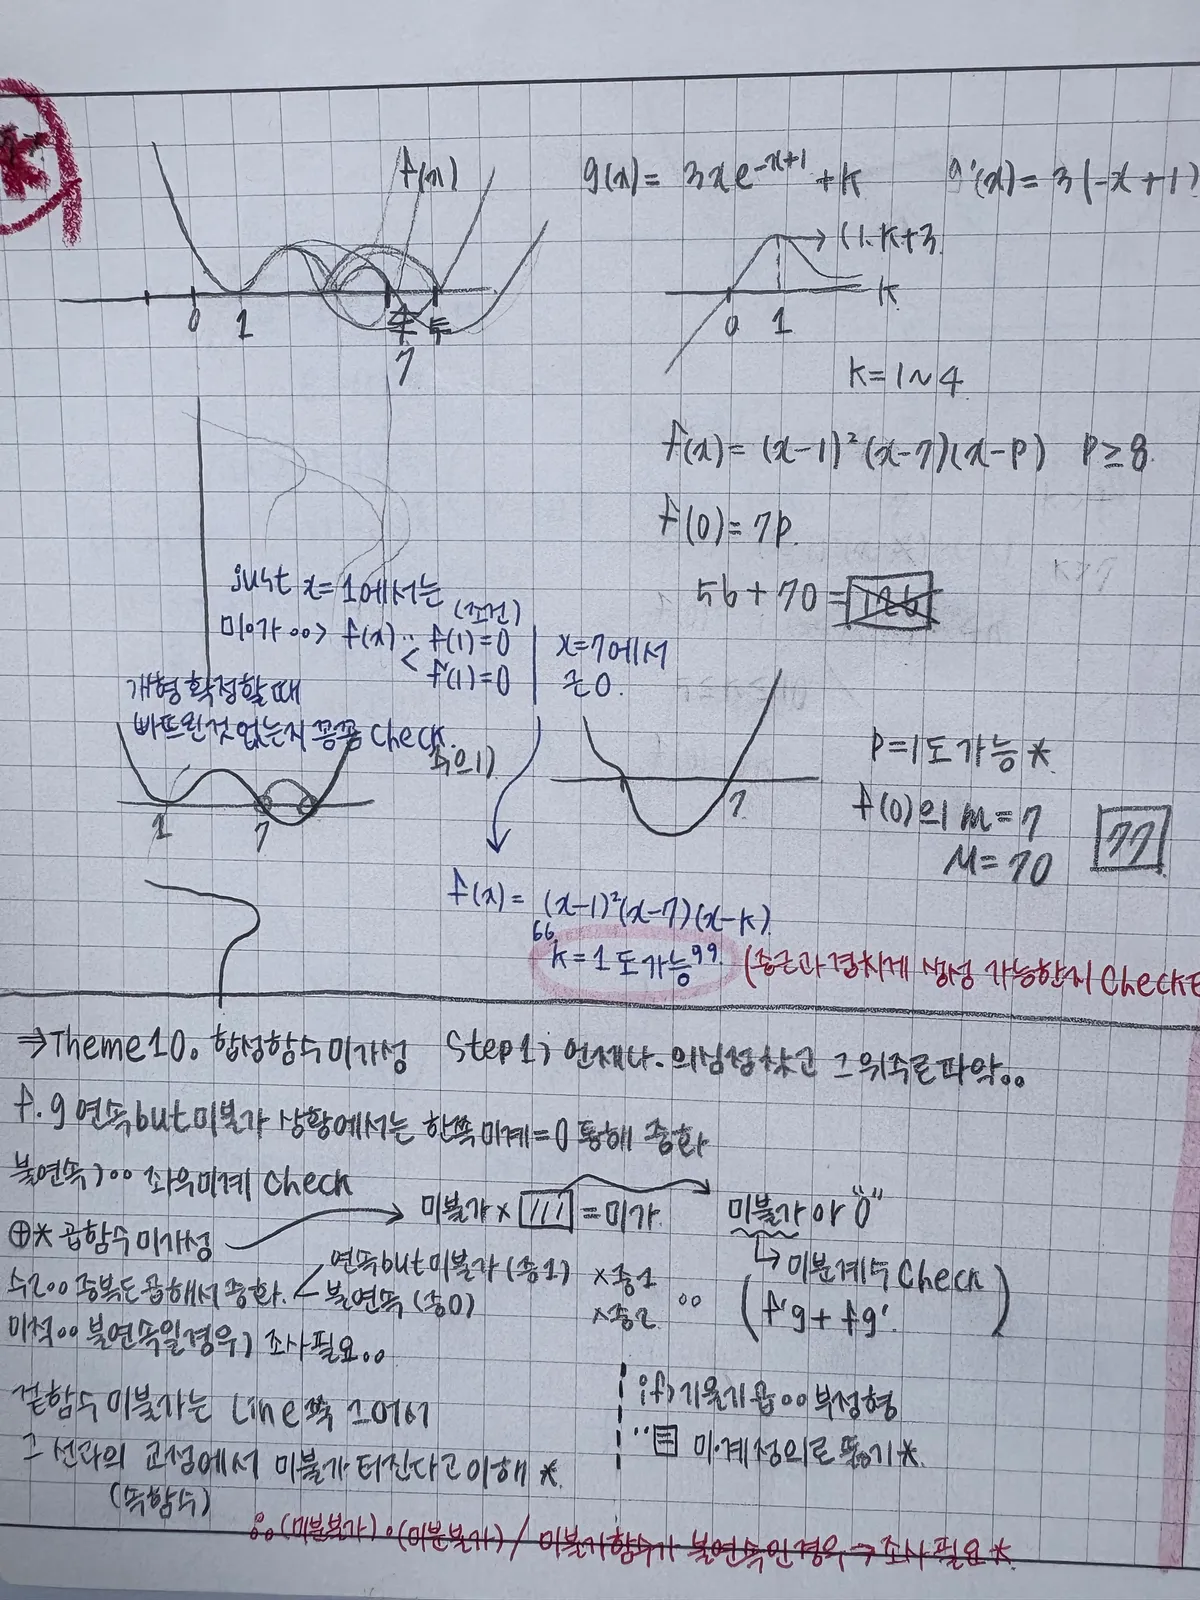 f(x)
g(x) = 3xe^{-x+1} + k
g'(x) = 3(-x+1)
(1. k+3.
k
0 1
0 1
7
k = 1~4
f(x) = (x-1)²(x-7)(x-p) p≥8.
f(0) = 7p.
56+70 = 126
just x=1에서는
(조건)
미가 f(x) f(1)=0
f'(1)=0
x=7에서
근0.
개형확정할때
빠뜨린것없는지 꼼꼼 check.
주의)
1 7
7
p=1도가능*
f(0)의 m=7
M=70
77
f(x) = (x-1)²(x-7)(x-k)
"k=1도가능" (중근과겹치게 생성 가능한지 Check
⇒Theme10. 합성함수미가성 Step1; 언제나. 의심점찾고 그위주로파악..
f. g 연속but미불가 상황에서는 한쪽미계=0 통해 중화
불연속; 좌우미계 check
⊕* 곱함수미가성
미불가 × = 미가
미불가 아 "0"
미분계수 check
(f'g + fg')
수2 중복도곱해서중화.
연속but미불가 (중1) ×중1
불연속 (중0) ×중2
미적 불연속일경우; 조사필요..
겉함수 미불가는 Line쫙 그어서
그 선과의 교점에서 미불가터진다고이해*.
(속함수)
if; 기울기곱 부정형
미계정의로 뚫기*.
(미분불가)∘(미분불가) / 미불가함수가 불연속인경우→조사필요*